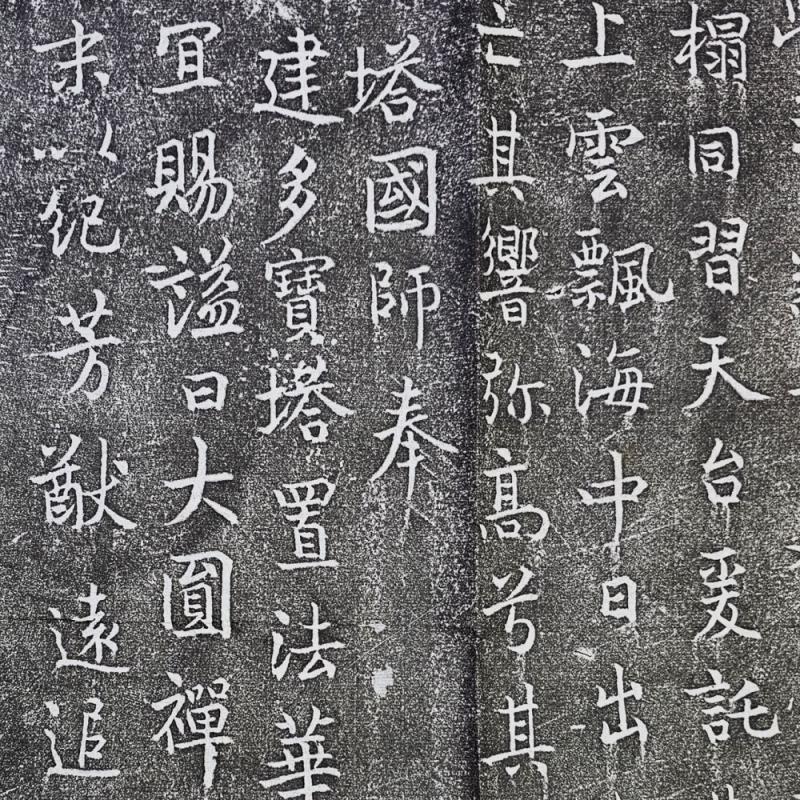 榻同習天台爰託
上雲飄海中日出
亡其響弥高兮其
塔國師奉
建多寶塔置法華
宜賜謚曰大圎禪
末以紀芳猷遠追